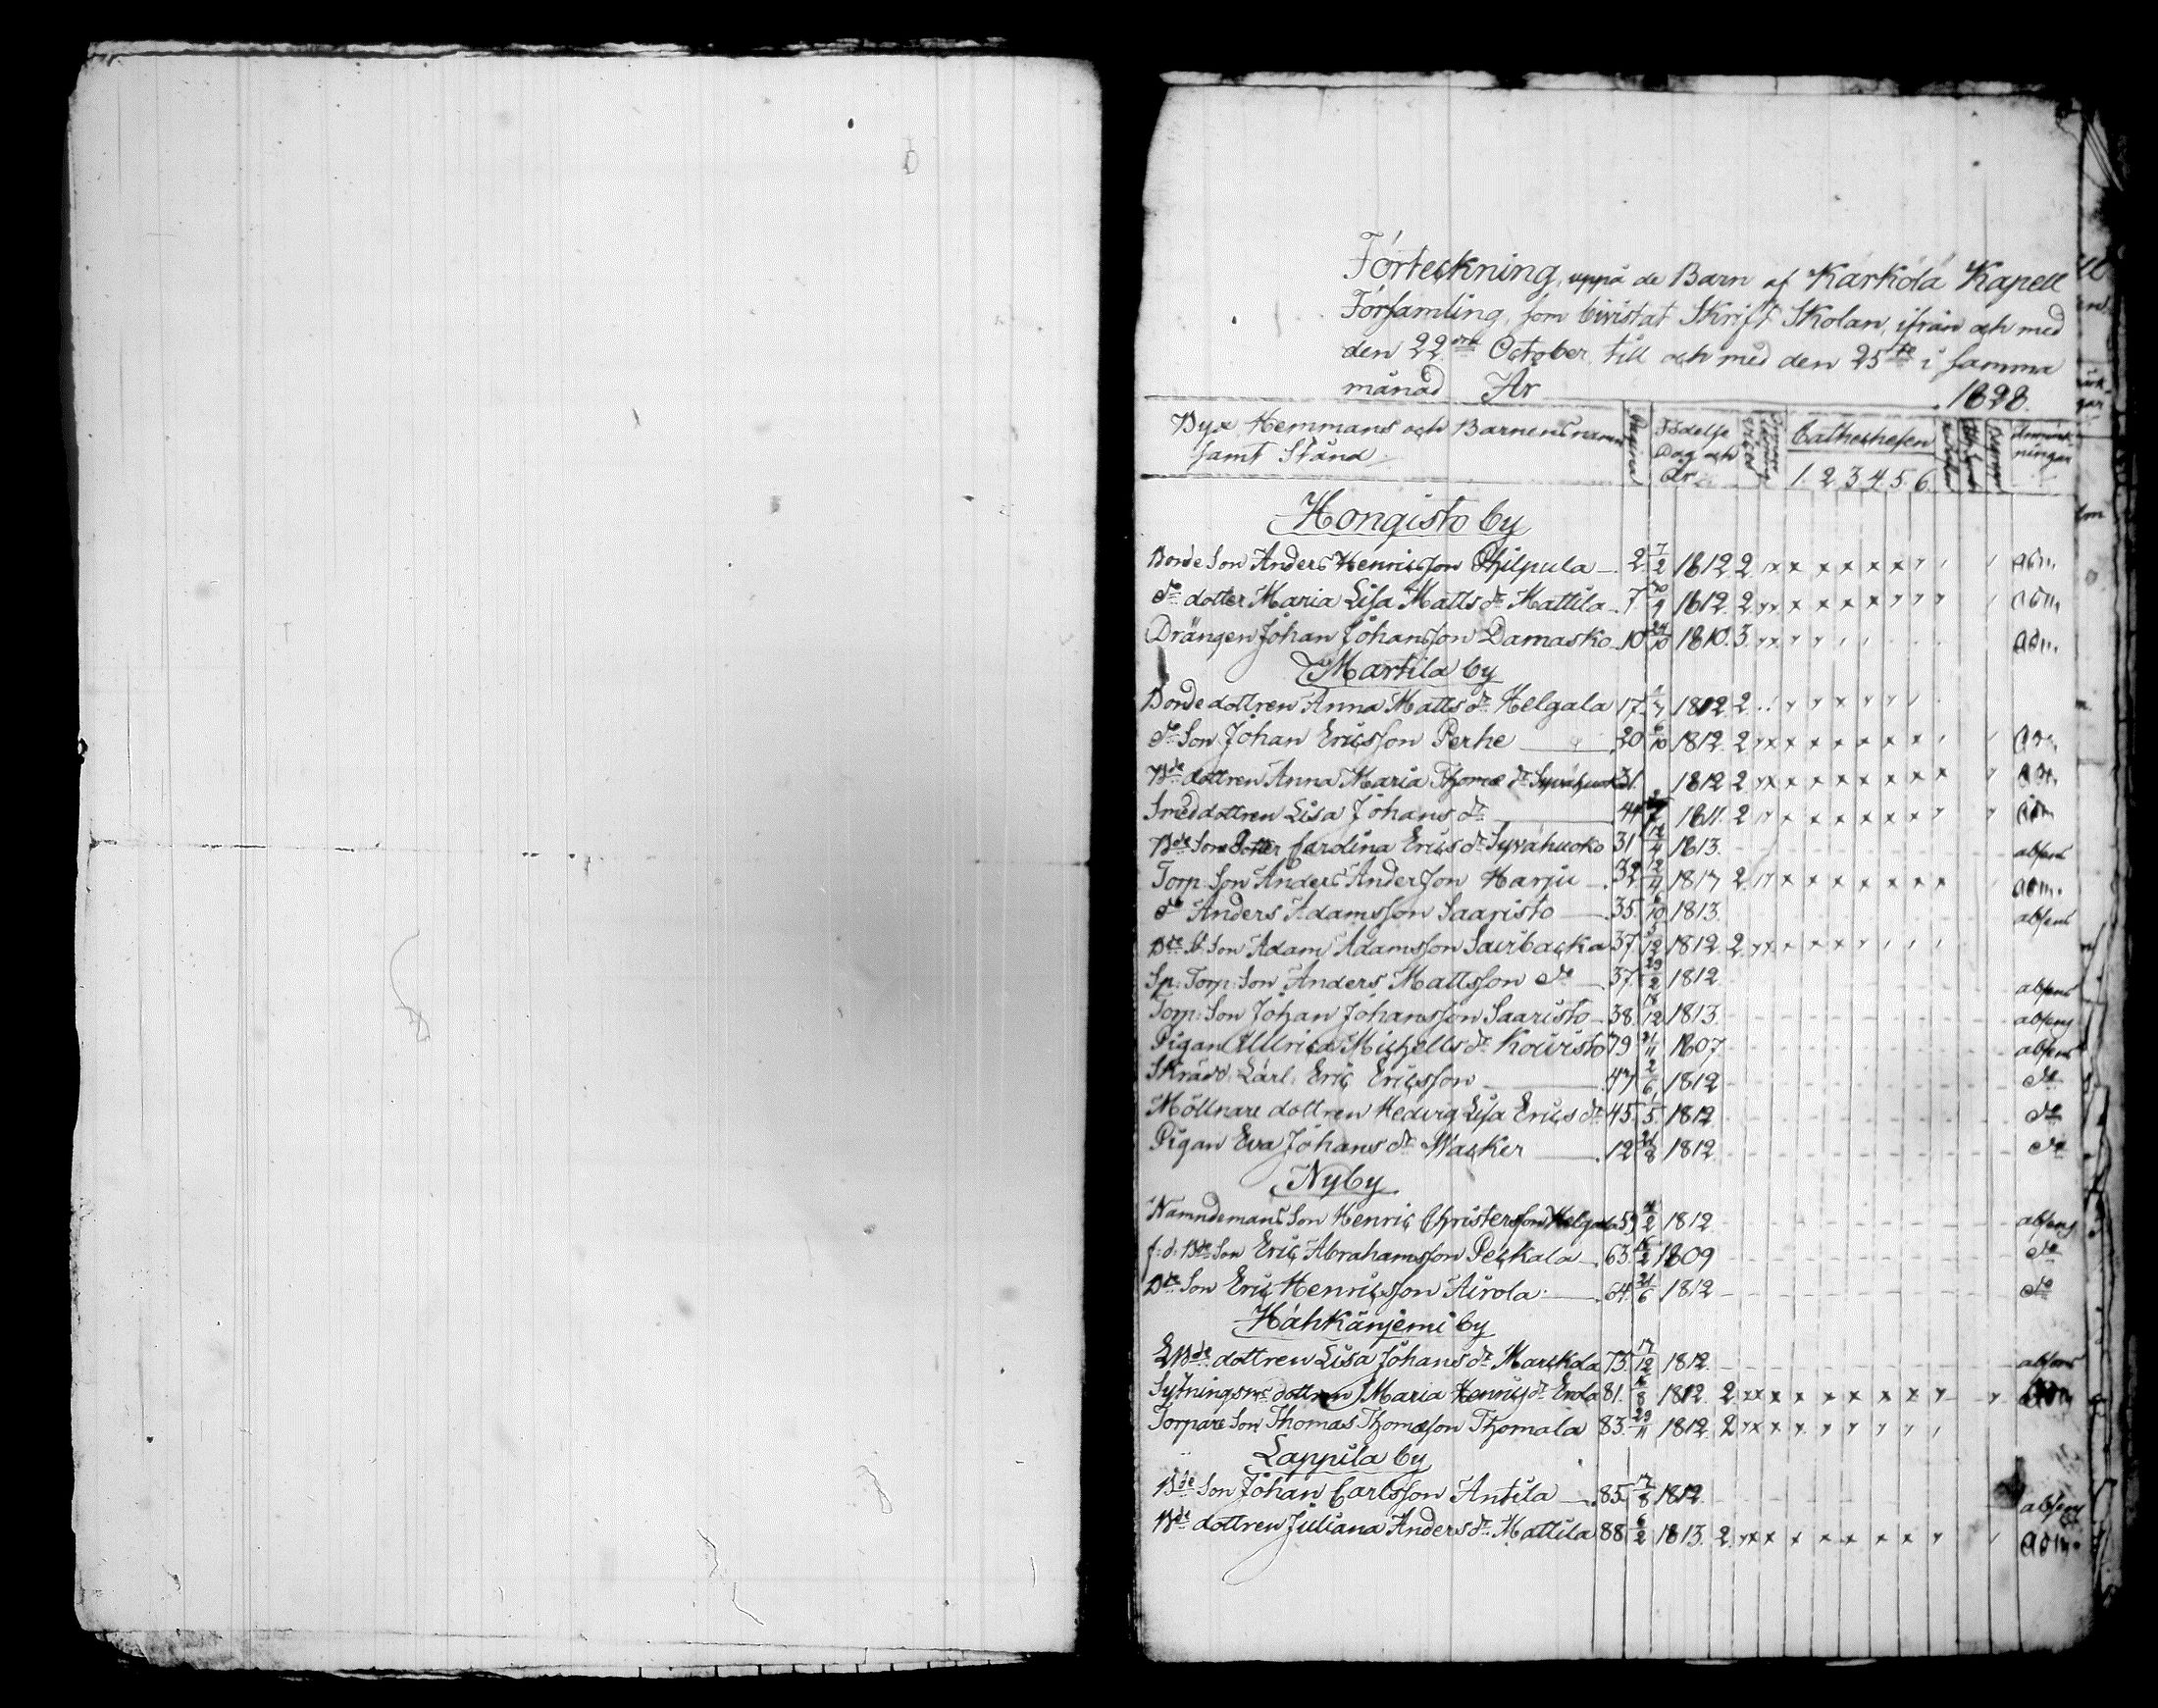 Förteckning, uppå de Barn af Kärkölä Kapell
Församling, som bivistat Skrift Skolan, ifrån och med
den 22dra October till och med den 25te i samma
månad År 1828.
Byx Hemmans och Barnens namn samt Stånd Pagina Födelse Dag och År Cathechesen 1. 2. 3. 4. 5. 6. Anmärkningar
Hongisto by
Bonde Son Anders Henricsson Philpula 2. 7/2 1812 2. adm.
do dotter Maria Lisa Matts dr Mattila 7 1812. 2. adm.
Drängen Johan Johansson Damasko 10 24/10 1810. 3. adm.
Martila by
Bonde dottren Anna Matts dr Helgala 17. 1812 2
do Son Johan Ericsson Perhe 20 6/10 1812. 2 adm.
Bde dottren Anna Maria Thomæ dr Syvähuoko 31. 1812 2 adm.
Smed dottren Lisa Johans dr 44 1811. 2 adm
Bde Sone Dotter Carolina Erics dr Syvähuoko 31 12/4 1813. absens
Torp: Son Anders Andersson Harju 32 12/4 1817 2 adm.
do Anders Adamsson Saaristo 35. 6/10 1813. absens
Bde S. Son Adam Adamsson Savibacka 37. 5/12 1812. 2
Sp: Torp: Son Anders Mattsson do 37. 29/2 1812. absens
Torp: Son Johan Johansson Saaristo 38. 18/12 1813. absens
Pigan Ulrica Michells dr Koivisto 79 21/11 1807. absens
Skrädd: Lärl: Eric Ericsson 47 2/6 1812 do
Möllnare dottren Hedvig Lisa Erics dr 45 1/5. 1812 do
Pigan Eva Johans dr Wacker 12 21/8 1812 do
Nyby
Nämndemans Son Henric Christersson Helgala 59 1812 absens
f: d: Bde Son Eric Abrahamsson Peckala 63. 16/2 1809 do
Bde Son Eric Henricsson Airola 64. 21/6 1812 do
Hähkänjemi by
Bde dottren Lisa Johans dr Marckola 73. 17/12 1812. absens
Sytningsms dottren Maria Henrics dr Erola 81. 16/8 1812. 2 adm
Torpare Son Thomas Thomæson Thomala 83. 29/11 1812. 2
Lappila by
Bde Son Johan Carlsson Antila 85. 17/8 1812. absens
Bde dottren Juliana Anders dr Mattila 88. 6/2 1813. 2. adm.